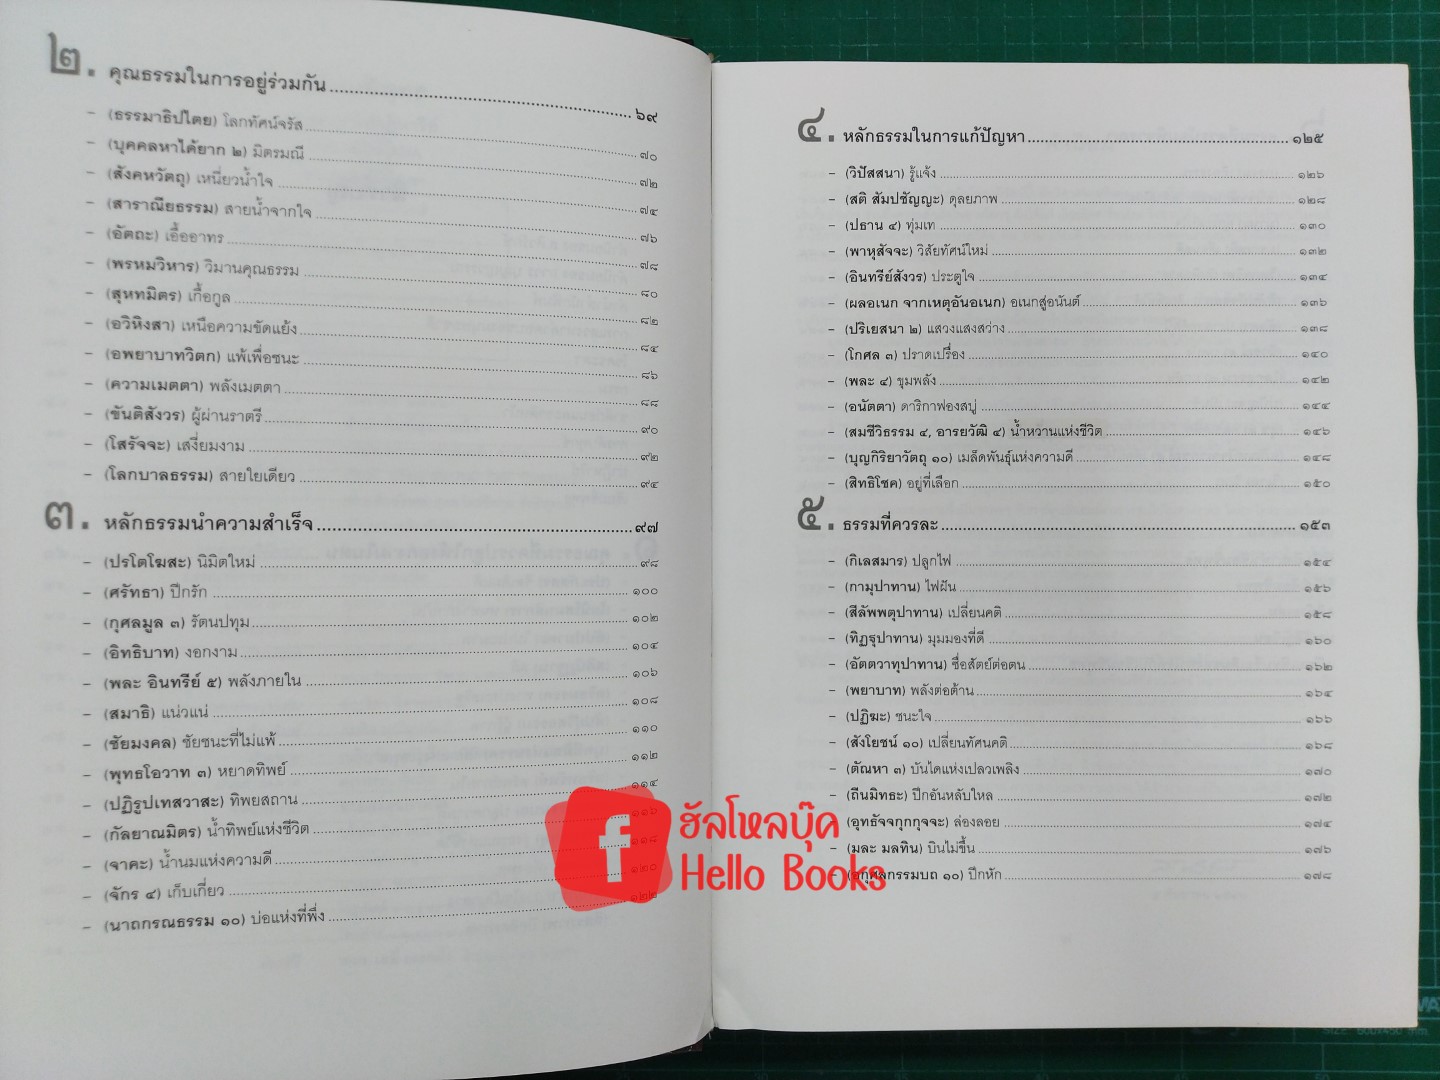 ๒. คุณธรรมในการอยู่ร่วมกัน ๖๙
- (ธรรมาธิปไตย) โลกทัศน์จรัส ๗๐
- (บุคคลหาได้ยาก ๒) มิตรมณี ๗๒
- (สังคหวัตถุ) เหนี่ยวน้ำใจ ๗๔
- (สาราณียธรรม) สายน้ำจากใจ ๗๖
- (อัตถะ) เอื้ออาทร ๗๘
- (พรหมวิหาร) วิมานคุณธรรม ๘๐
- (สุหทมิตร) เกื้อกูล ๘๒
- (อวิหิงสา) เหนือความขัดแย้ง ๘๔
- (อพยาบาทวิตก) แพ้เพื่อชนะ ๘๖
- (ความเมตตา) พลังเมตตา ๘๘
- (ขันติสังวร) ผู้ผ่านราตรี ๙๐
- (โสรัจจะ) เสงี่ยมงาม ๙๒
- (โลกบาลธรรม) สายใยเดียว ๙๔
๓. หลักธรรมนำความสำเร็จ ๙๗
- (ปรโตโฆสะ) นิมิตใหม่ ๙๘
- (ศรัทธา) ปีกรัก ๑๐๐
- (กุศลมูล ๓) รัตนปทุม ๑๐๒
- (อิทธิบาท) งอกงาม ๑๐๔
- (พละ อินทรีย์ ๕) พลังภายใน ๑๐๖
- (สมาธิ) แน่วแน่ ๑๐๘
- (ชัยมงคล) ชัยชนะที่ไม่แพ้ ๑๑๐
- (พุทธโอวาท ๓) หยาดทิพย์ ๑๑๒
- (ปฏิรูปเทสวาสะ) ทิพยสถาน ๑๑๔
- (กัลยาณมิตร) น้ำทิพย์แห่งชีวิต ๑๑๖
- (จาคะ) น้ำนมแห่งความดี ๑๑๘
- (จักร ๔) เก็บเกี่ยว ๑๒๐
- (นาถกรณธรรม ๑๐) บ่อแห่งที่พึ่ง ๑๒๒
๔. หลักธรรมในการแก้ปัญหา ๑๒๕
- (วิปัสสนา) รู้แจ้ง ๑๒๖
- (สติ สัมปชัญญะ) ดุลยภาพ ๑๒๘
- (ปธาน ๔) ทุ่มเท ๑๓๐
- (พาหุสัจจะ) วิสัยทัศน์ใหม่ ๑๓๒
- (อินทรีย์สังวร) ประตูใจ ๑๓๔
- (ผลอเนก จากเหตุอันอเนก) อเนกสู่อนันต์ ๑๓๖
- (ปริเยสนา ๒) แสวงแสงสว่าง ๑๓๘
- (โกศล ๓) ปราดเปรื่อง ๑๔๐
- (พละ ๔) ขุมพลัง ๑๔๒
- (อนัตตา) ดาริกาฟองสบู่ ๑๔๔
- (สมชีวิธรรม ๔, อารยวัฒิ ๔) น้ำหวานแห่งชีวิต ๑๔๖
- (บุญกิริยาวัตถุ ๑๐) เมล็ดพันธุ์แห่งความดี ๑๔๘
- (สิทธิโชค) อยู่ที่เลือก ๑๕๐
๕. ธรรมที่ควรละ ๑๕๓
- (กิเลสมาร) ปลูกไฟ ๑๕๔
- (กามุปาทาน) ไฟฝัน ๑๕๖
- (สีลัพพตุปาทาน) เปลี่ยนคติ ๑๕๘
- (ทิฏฐุปาทาน) มุมมองที่ดี ๑๖๐
- (อัตตวาทุปาทาน) ซื่อสัตย์ต่อตน ๑๖๒
- (พยาบาท) พลังต่อต้าน ๑๖๔
- (ปฏิฆะ) ชนะใจ ๑๖๖
- (สังโยชน์ ๑๐) เปลี่ยนทัศนคติ ๑๖๘
- (ตัณหา ๓) บันไดแห่งเปลวเพลิง ๑๗๐
- (ถีนมิทธะ) ปีกอันหลับใหล ๑๗๒
(อุทธัจจกุกกุจจะ) ล่องลอย ๑๗๔
(มละ มลทิน) บินไม่ขึ้น ๑๗๖
- (อกุศลกรรมบถ ๑๐) ปีกหัก ๑๗๘
f ฮัลโหลบุ๊ค
Hello Books